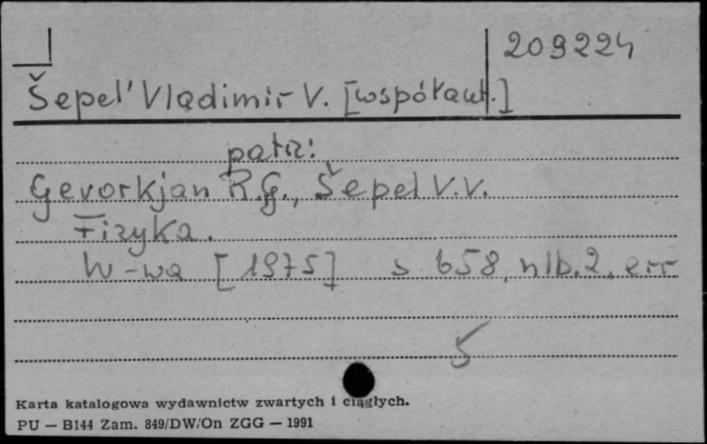 209224
Šepel' Vladimir V. [współaut.]
patrz:
Gevorkjan R.G., Šepel V.V.
Fizyka.
W-wa [1975] s 658, nlb. 2, err
5
Karta katalogowa wydawnictw zwartych i ciągłych.
PU — B144 Zam. 849/DW/On ZGG — 1991